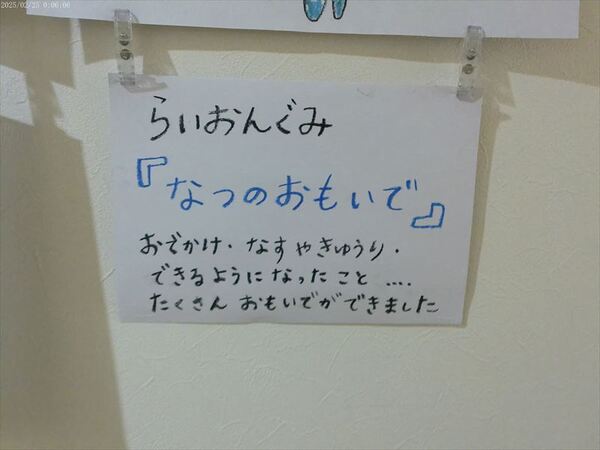 2025/02/25 0:06:06
らいおんぐみ
『なつのおもいで』
おでかけ・なすやきゅうり・
できるようになったこと ....
たくさん おもいでができました